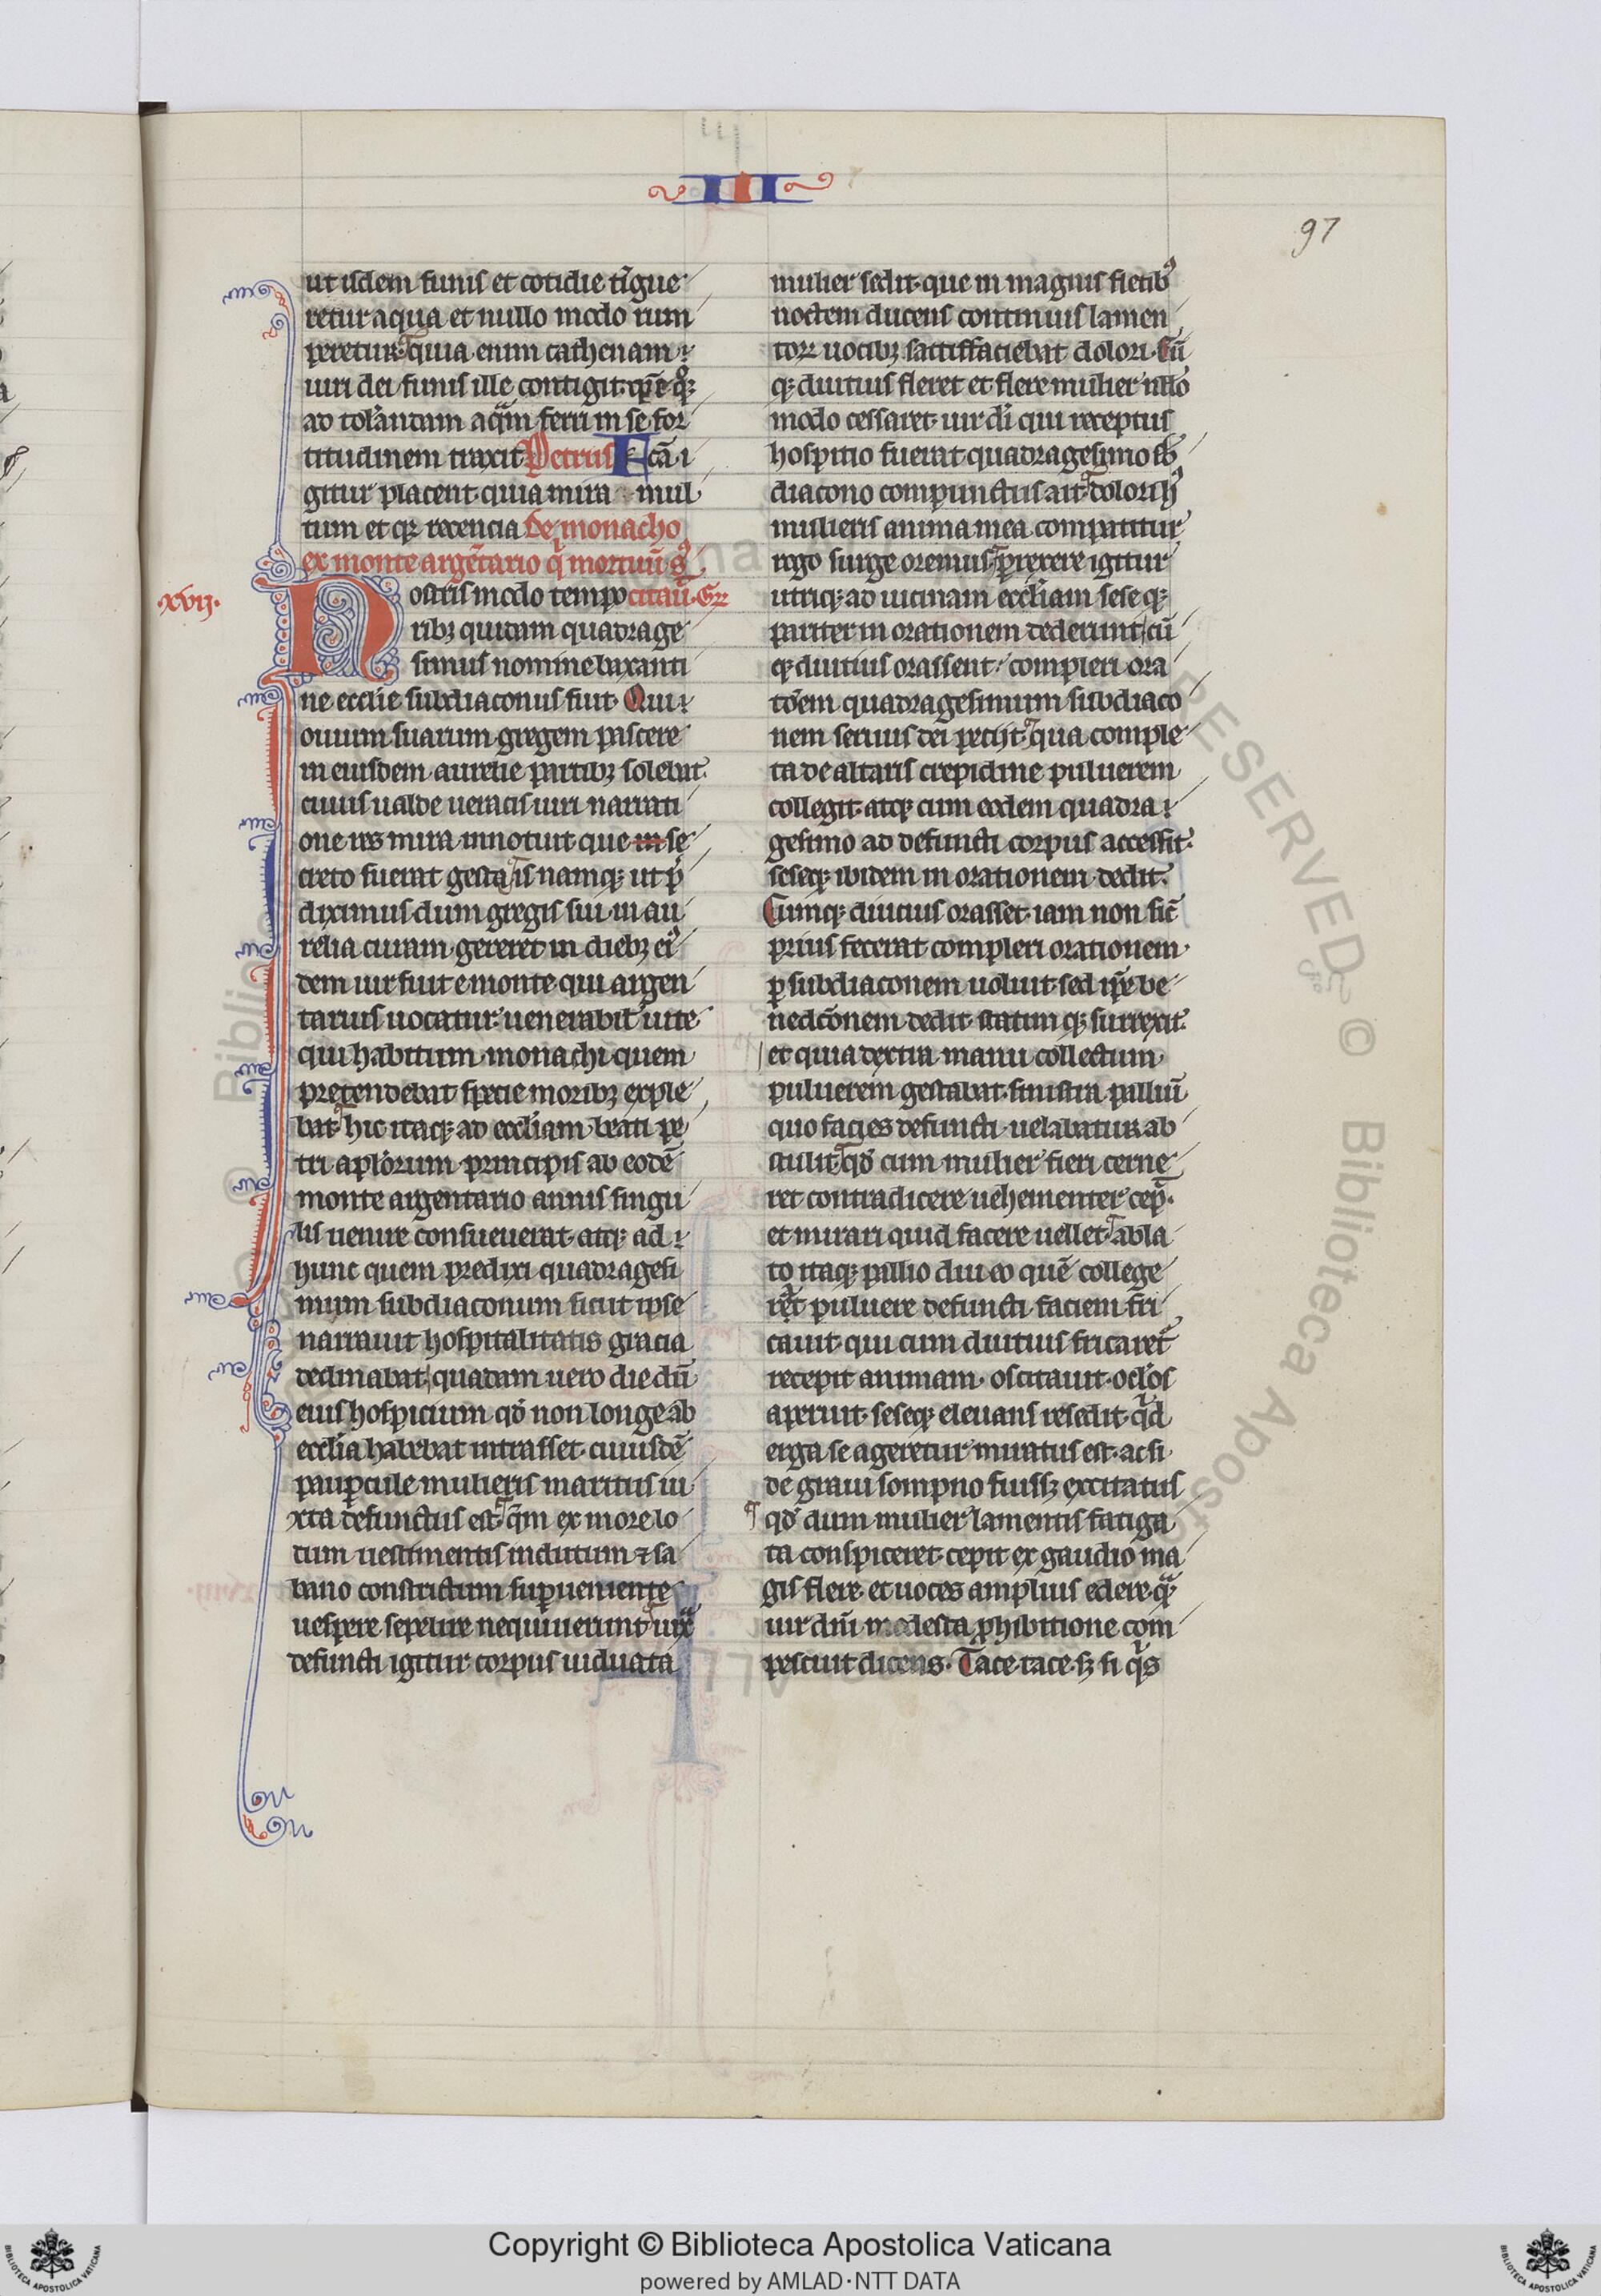 III
97
ut isdem funis et cotidie tīgue
retur aqua et nullo modo rum
peretur. quia enim cathenam
uiri dei funis ille contigit. ip̄e qͦꝫ
ad tolˀandum aqͣm ferri in se for
titudinem traxit Petrus Fc̄a i
gitur placent. quia mira mul
tum et qꝫ recencia De monacho
ex monte argēt̄ario q̇ mortuū sꝰ
xvij.
citaū. Gꝛ
Nostris modo tempo
ribꝫ quidam quadrage
simus nomine baxanti
ne ecclīe subdiaconus fuit. Qui
ouium suarum gregem pascere
in eiusdem aurelie partibꝫ solebat.
cuius ualde ueracis uiri narrati
one res mira innotuit. que in se
creto fuerat gesta is namqꝫ ut p̄
diximus dum gregis sui in au
relia curam gereret in diebꝫ eiꝰ
dem uir fuit e monte qui argen
tarius uocatur. uenerabil' uite
qui habitum monachi quem
pretendebat specie moribꝫ exple
bat. hic itaqꝫ ad ecclīam beati pe
tri aplōrum principis ab eodē
monte argentario annis singu
lis uenire consueuerat. atqꝫ ad
hunc quem predixi quadragesi
mum subdiaconum sicut ipse
narrauit hospitalitatis gracia
declinabat. quadam uero die dū
eius hospicium qd̄ non longe ab
ecclīa habebat intrasset. cuiusdē
paup̱cule mulieris maritus iu
xta defunctus est. q̄m ex more lo
tum uestimentis indutum ⁊ sa
bano constrictum sup̱ueniente
uespere sepelire nequiuerunt. iuxͣ
defuncti igitur corpus uiduata
mulier sedit. que in magnis fletibꝰ
noctem ducens continuis lamen
toꝝ uocibꝫ satisffaciebat dolori. Cū
qꝫ diutius fleret et flere mulier nllō
modo cessaret. uir dī qui receptus
hospitio fuerat quadragesimo sb̄
diacono compunctus ait. dolori hꝰ
mulieris anima mea compatitur
rogo surge oremus. p̱rexere igitur
utriqꝫ ad uicinam eccłiam sese qꝫ
pariter in orationem dederunt. cū
qꝫ diutius orassent. compleri ora
tōem quadragesimum subdiaco
nem seruus dei petijt. qua comple
ta de altaris crepidine puluerem
collegit. atqꝫ cum eodem quadra
gesimo ad defuncti corpus accessit.
seseqꝫ ibidem in orationem dedit.
Cumqꝫ diucius orasset. iam non sic̄
prius fecerat compleri orationem
p̱ subdiaconem uoluit. sed ip̄e be
nedcōnem dedit. statim qꝫ surrexit.
et quia dextra manu collectum
puluerem gestabat. sinistra palliū
quo facies defuncti uelabatur. ab
stulit. qd̄ cum mulier fieri cerne
ret contradicere uehementer cep̄.
et mirari quid facere uellet. abla
to itaqꝫ pallio diu eo quē college
rat puluere defuncti faciem fri
cauit. qui cum diutius fricaret̄
recepit animam. oscitauit. oclōs
aperuit. seseqꝫ eleuans resedit. qͥd
erga se ageretur miratus est. ac si
de graui sompno fuissꝫ excitatus
qd̄ dum mulier lamentis fatiga
ta conspiceret. cepit ex gaudio ma
gis flere. et uoces amplius edere. qͣꝫ
uir dn̄i modesta p̱hibitione com
pescuit dicens. Tace tace. sꝫ si qͥs
Copyright © Biblioteca Apostolica Vaticana
powered by AMLAD·NTT DATA